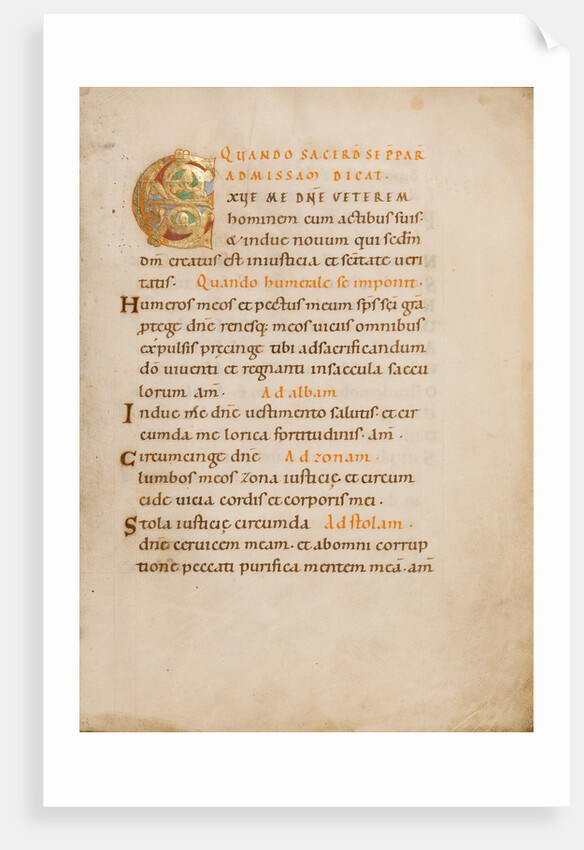 QUANDO SACERD̄ SE P̄PAR̄
AD MISSAM DICAT.
EXUE ME DN̄E VETEREM
hominem cum actibus suis.
& indue novum qui sedm̄
dm̄ creatus est iniusticia et sc̄itate veri
tatis. Quando humerale se imponit.
Humeros meos et pectus meum sp̄s sc̄i gr̄a
ꝓtege dn̄e renesq; meos viciis omnibus
expulsis precinge tibi adsacrificandum
dō viventi et regnanti insaecula saecu
lorum am̄. Ad albam
Indue me dn̄e vestimento salutis. et cir
cumda me lorica fortitudinis. am̄.
Circumcinge dn̄e Ad zonam.
lumbos meos zona iusticię. et circum
cide vicia cordis et corporis mei.
Stola iusticię circumda Ad stolam.
dn̄e cervicem meam. et abomni corrup
tione peccati purifica mentem meā. am̄